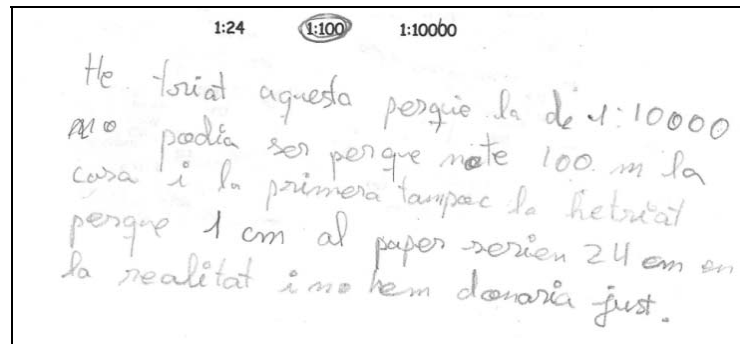 1:24 1:100 1:10000
He triat aquesta perque la de 1:10000
no podia ser perque note 100 m la
casa i la primera tampoc la hetriat
perque 1 cm al paper serien 24 cm en
la realitat i no hem donaria just.